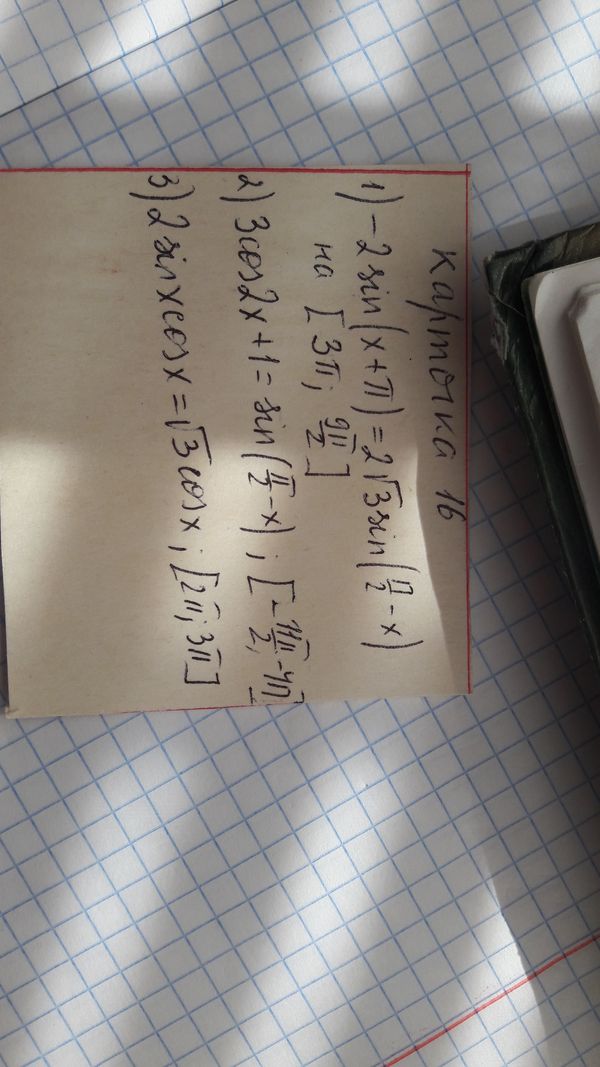 Карточка 16
1) -2 sin(x+π) = 2√3 sin(π/2 - x)
на [3π; 9π/2]
2) 3cos2x + 1 = sin(π/2 - x); [-11π/2; -4π]
3) 2 sinx cosx = √3 cosx; [2π; 3π]